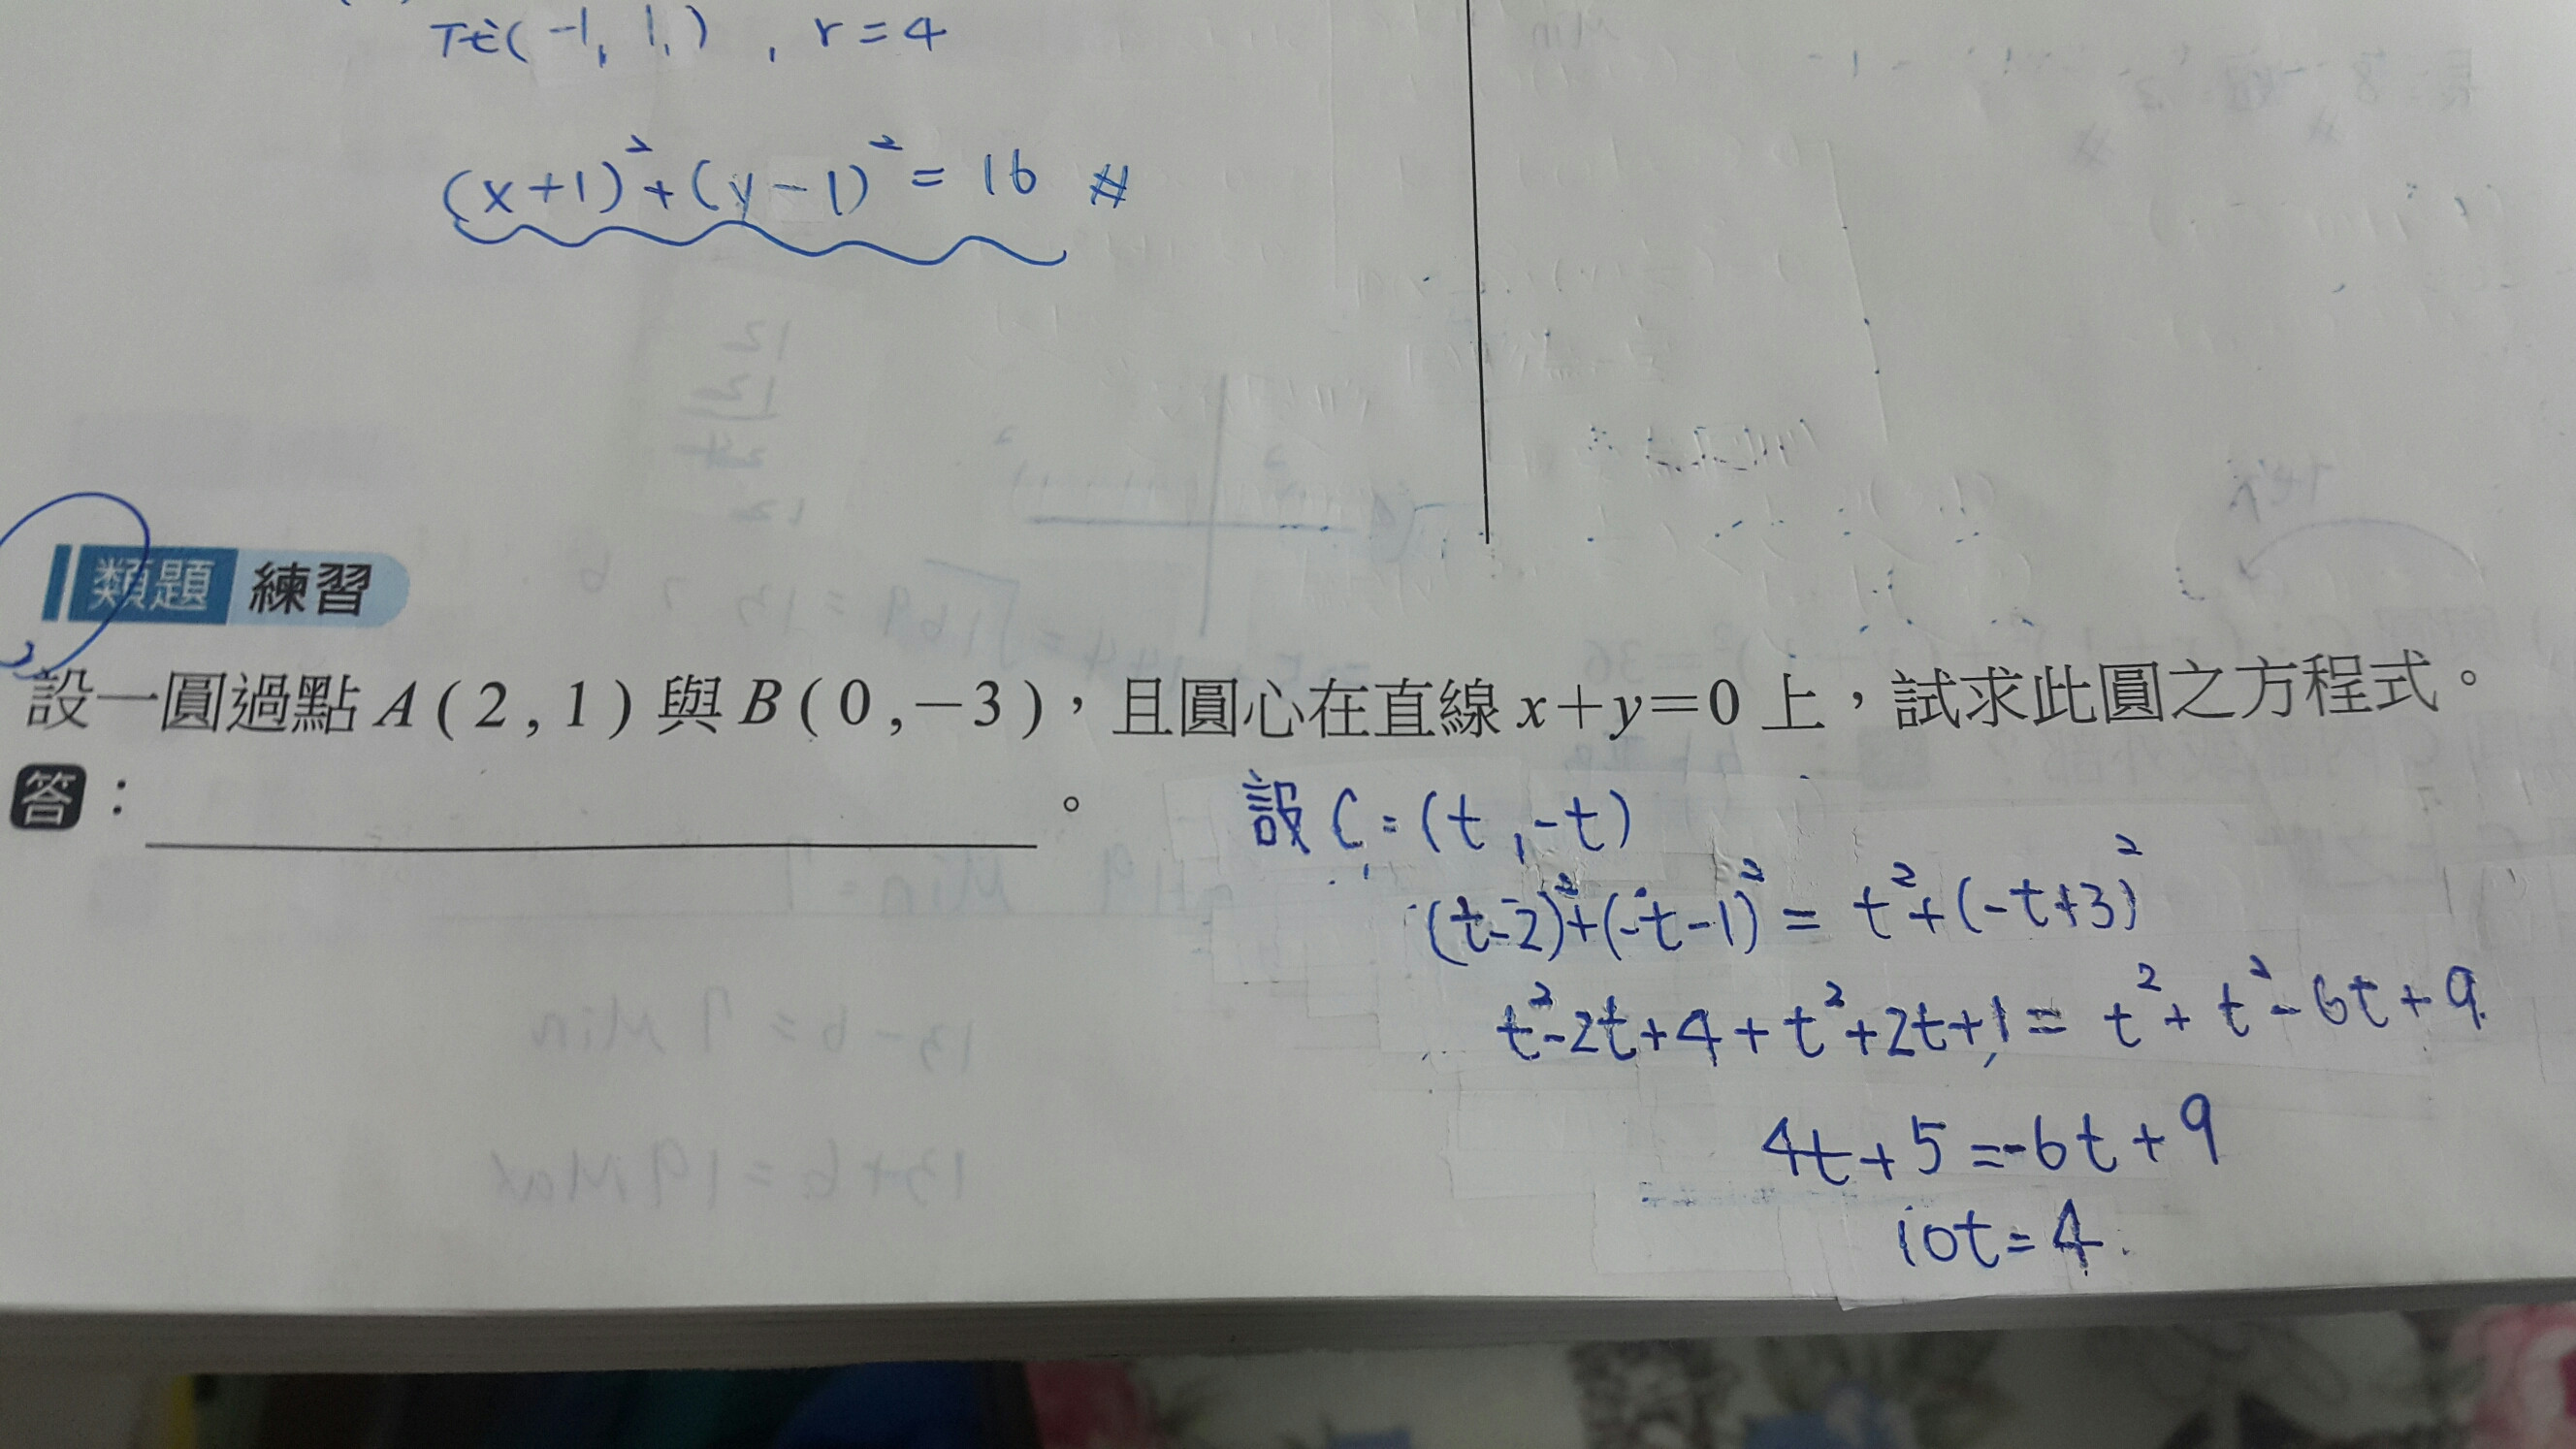 (-1, 1), r=4
(x+1)²+(y-1)²=16 #
類題 練習
設一圓過點 A(2,1) 與 B(0,-3),且圓心在直線 x+y=0 上,試求此圓之方程式。
答: 。
設 C=(t,-t)
(t-2)²+(-t-1)²=t²+(-t+3)²
t²-2t+4+t²+2t+1=t²+t²-6t+9
4t+5=-6t+9
10t=4